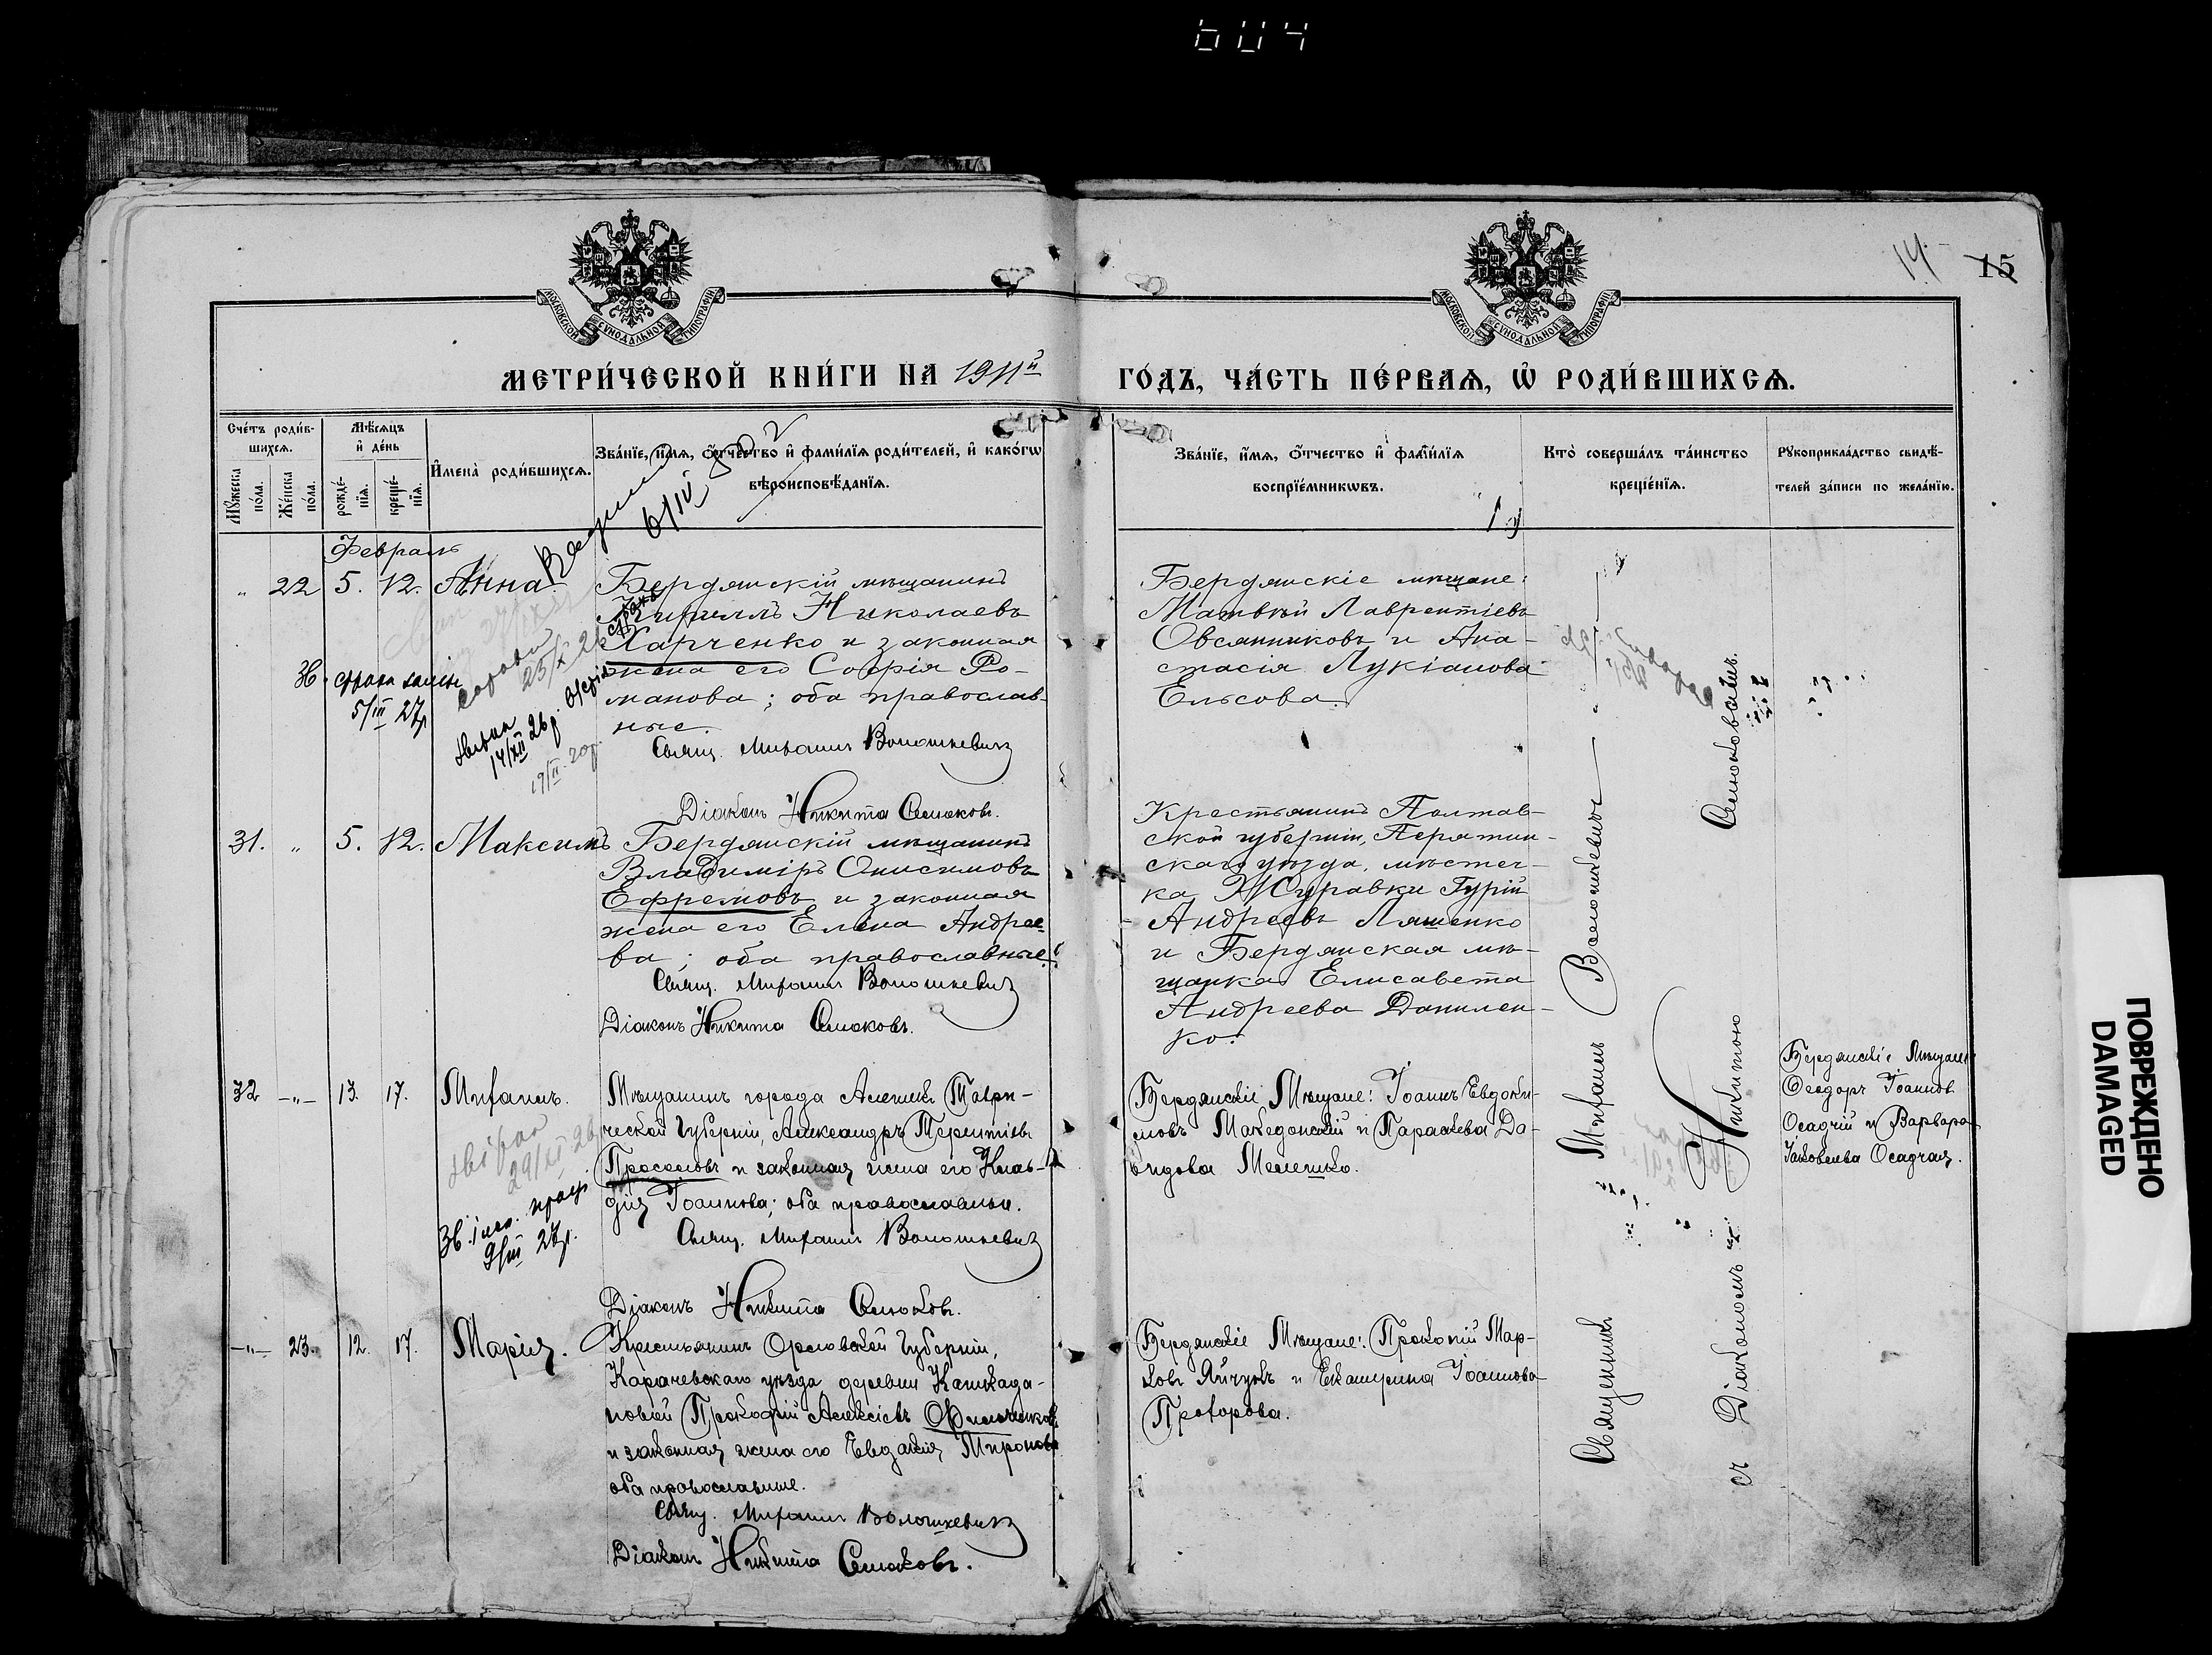 604
14.
15
МОСКОВСКОЙ СѴНОДАЛЬНОЙ ТИПОГРАФІИ
МОСКОВСКОЙ СѴНОДАЛЬНОЙ ТИПОГРАФІИ
МЕТРИ́ЧЕСКОЙ КНИ́ГИ НА 1911й ГО́ДЪ, ЧА́СТЬ ПЕ́РВАѦ, Ѡ҆ РОДИ́ВШИХСѦ.
Сче́тъ роди́в-
шихсѧ.
Мꙋ́жеска по́ла.
Же́нска по́ла.
Мѣ́сѧцъ
и҆ де́нь
рожде́-
нїѧ.
креще́-
нїѧ.
И҆мена̀ роди́вшихсѧ.
Зва́нїе, и҆́мѧ, ѻ҆́тчество и҆ фами́лїѧ роди́телей, и҆ како́гѡ
вѣроисповѣ́данїѧ.
Зва́нїе, и҆́мѧ, ѻ҆́тчество и҆ фами́лїѧ
воспрїе́мникѡвъ.
Кто̀ соверша́лъ та́инство
креще́нїѧ.
Рꙋкоприкла́дство свидѣ́-
телей за́писи по жела́нїю.
Февраль
" 22 5. 12. Анна
Бердянскій мѣщанинъ
Кириллъ Николаевъ
Харченко и законная
жена его Софія Ро-
манова; оба православ-
ные.
Свящ. Михаилъ Волошкевичъ
Діаконъ Никита Семаковъ.
Бердянскіе мѣщане:
Матвѣй Лаврентіевъ
Овсянниковъ и Ана-
стасія Лукіанова
Ельсова.
5/III 27р.
23/X 26
14/XII 26р.
6/IV
31. " 5. 12. Максимъ
Бердянскій мѣщанинъ
Владиміръ Онисимовъ
Ефремовъ и законная
жена его Елена Андрее-
ва; оба православные.
Свящ. Михаилъ Волошкевичъ
Діаконъ Никита Семаковъ.
Крестьянинъ Полтав-
ской губерніи, Пирятин-
скаго уѣзда, мѣстеч-
ка Журавки Гурій
Андреевъ Ляшенко
и Бердянская мѣ-
щанка Елисавета
Андреева Данилен-
ко.
32 -"- 13. 17. Михаилъ.
Мѣщанинъ города Алешекъ Таври-
ческой Губерніи, Александръ Терентіевъ
и законная жена его Клав-
дія Іоаннова; оба православные.
Свящ. Михаилъ Волошкевичъ
Діаконъ Никита Семаковъ.
Бердянскіе Мѣщане: Іоаннъ Евдоки-
мовъ Македонскій и Параскева Да-
видова Мелешко.
Бердянскіе Мѣщане
Ѳеодоръ Іоанновъ
Осадчій и Варвара
Іаковлева Осадчая.
29/XI 26
9/III 27р.
-"- 23. 12. 17. Марія.
Крестьянинъ Орловской Губерніи,
Карачевскаго уѣзда деревни
Прокофій Алексіевъ
и законная жена его Евдокія Миронова
оба православные.
Свящ. Михаилъ Волошкевичъ
Діаконъ Никита Семаковъ.
Бердянскіе Мѣщане: Прокопій Мар-
ковъ Яйчукъ и Екатерина Іоаннова
Прохорова.
Священникъ Михаилъ Волошкевичъ
съ Діакономъ Никитою Семаковымъ.
ПОВРЕЖДЕНО
DAMAGED